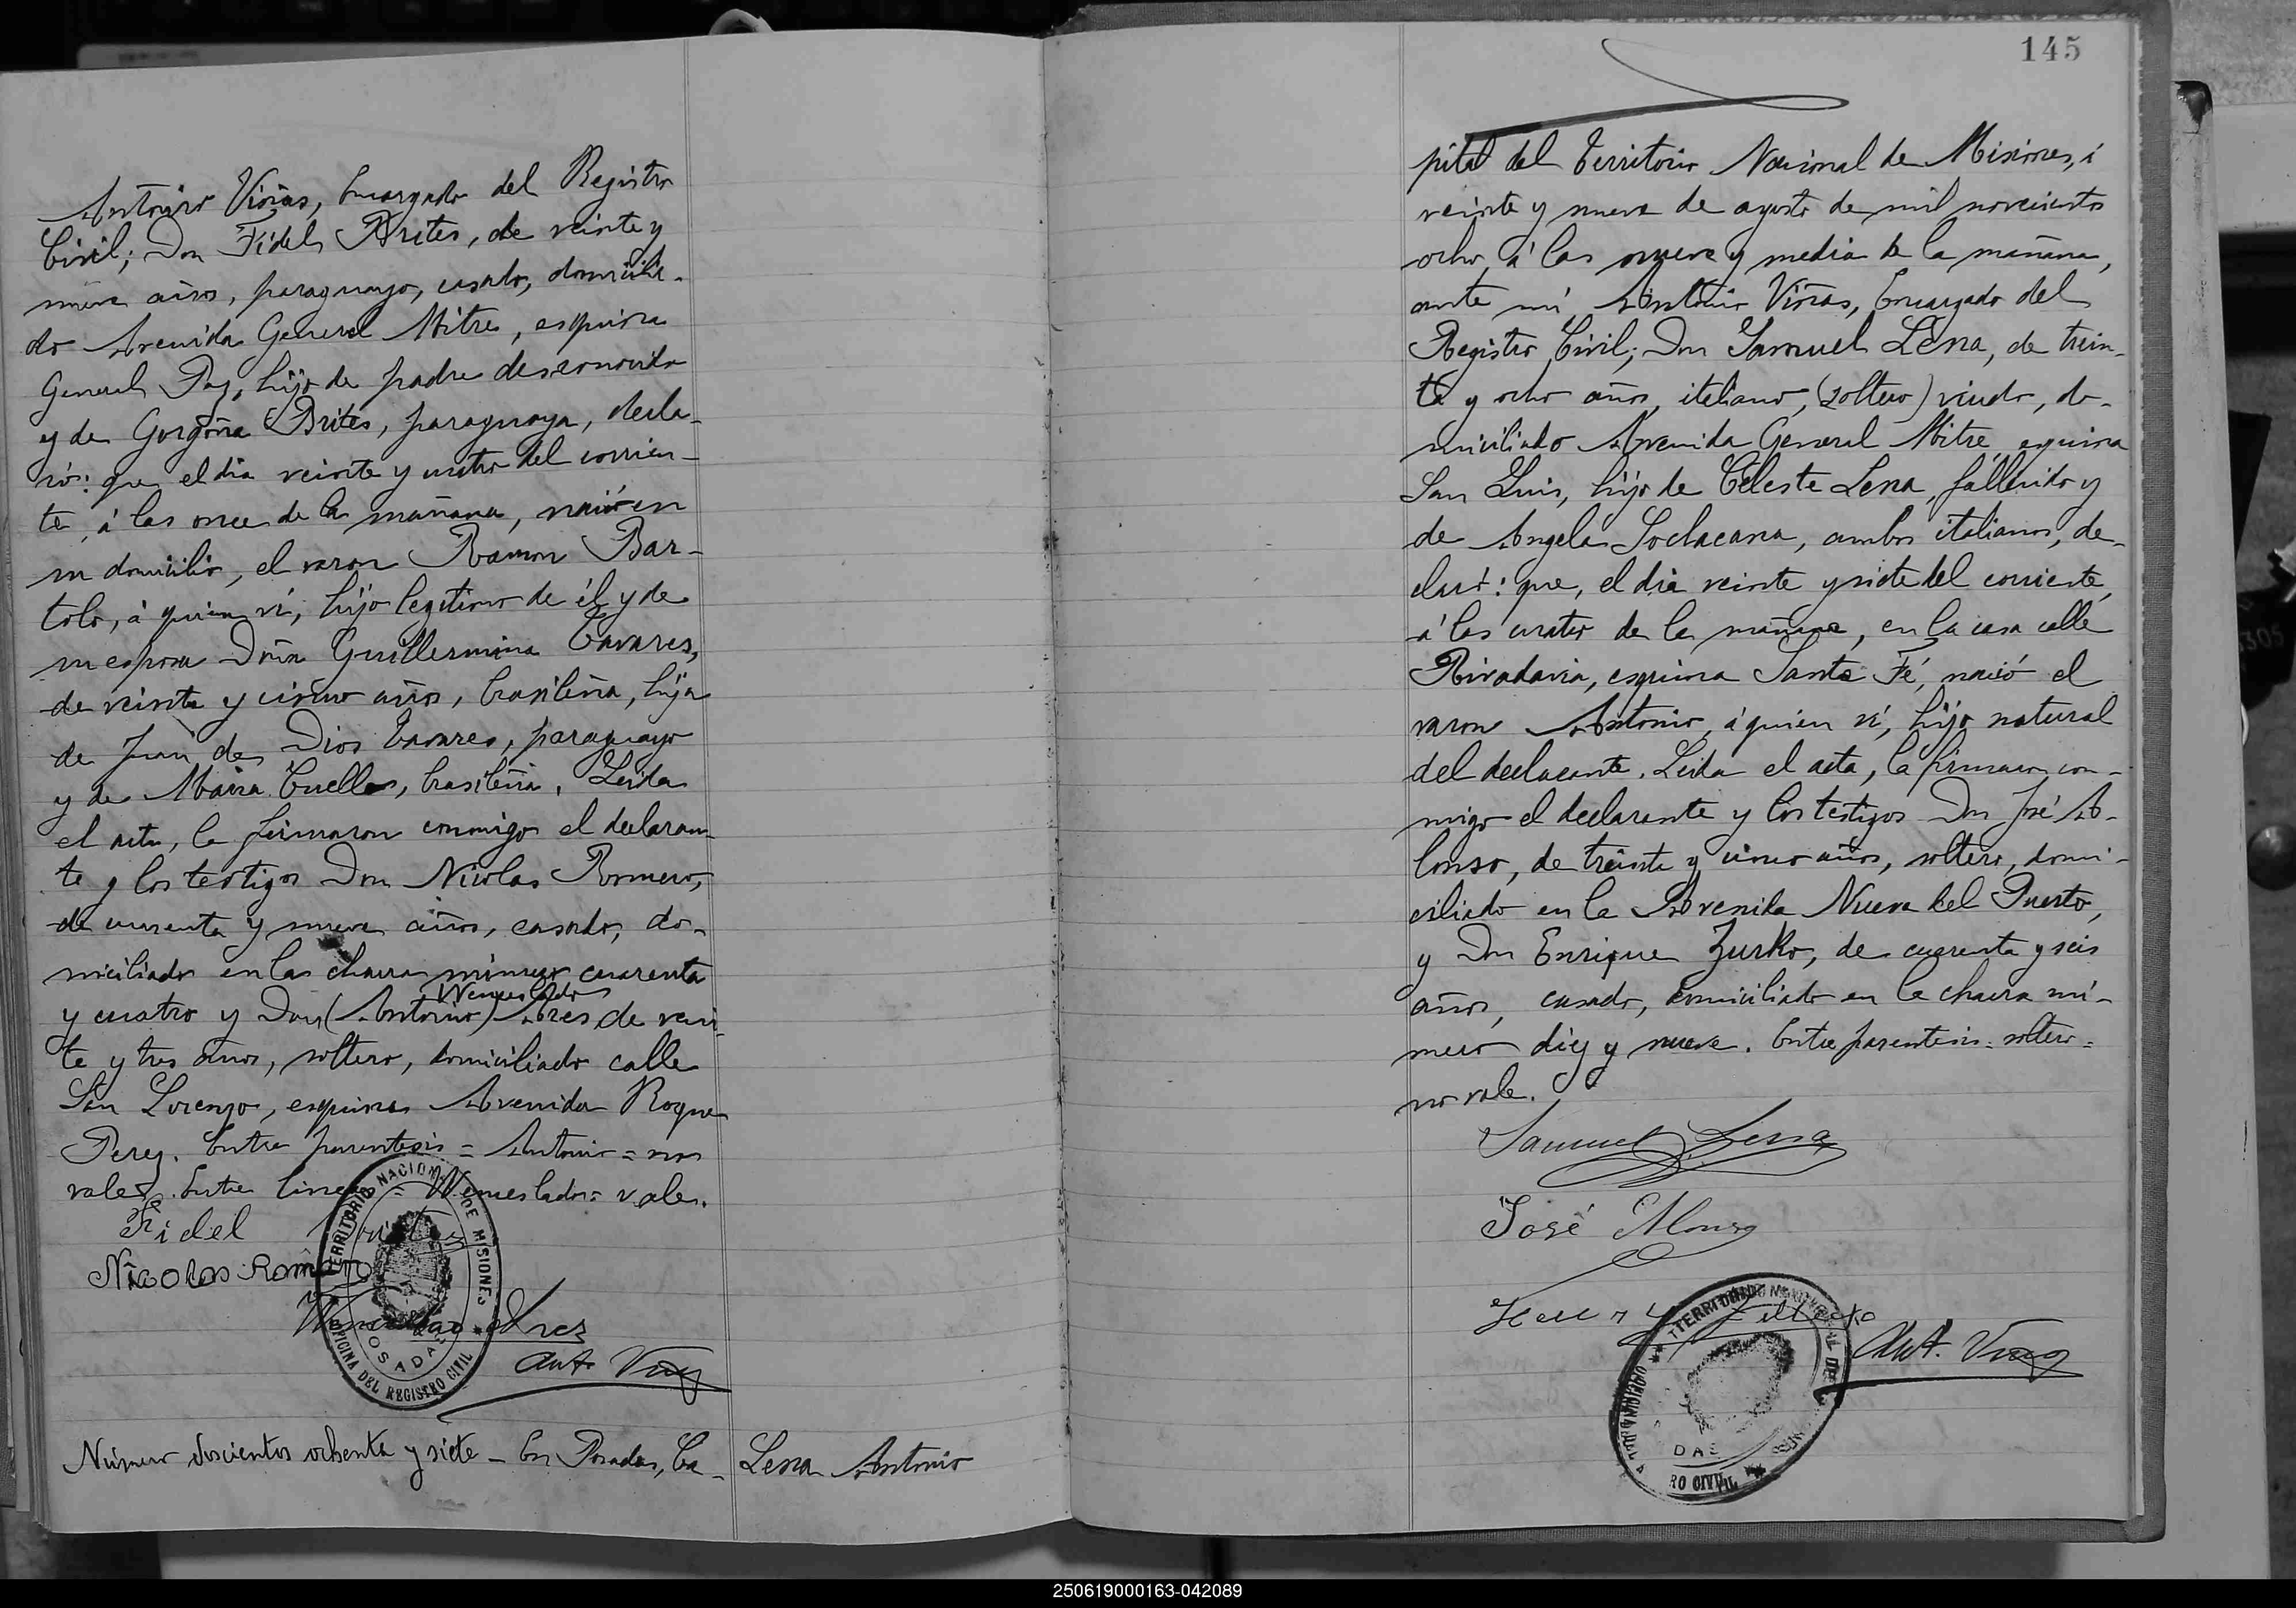 Antonio Viñas, Encargado del Registro
Civil; Don Fidel Brites, de veinte y
nueve años, paraguayo, casado, domicilia-
do Avenida General Mitre, esquina
General Paz, hijo de padre desconocido
y de Gorgoña Brites, paraguaya, decla-
ró: que el dia veinte y cuatro del corrien-
te, á las once de la mañana, nació en
su domicilio, el varon Ramon Bar-
tolo, á quien ví, hijo legitimo de él y de
su esposa Doña Guillermina Tavares,
de veinte y cinco años, brasileña, hija
de Juan de Dios Tavares, paraguayo
y de Maria Cuellar, brasileña. Leida
el acta, la firmaron conmigo el declaran-
te y los testigos Don Nicolas Romero,
de cuarenta y nueve años, casado, do-
miciliado en la chacra número cuarenta
y cuatro y Don (Antonio) Wenceslado Ares de vein-
te y tres años, soltero, domiciliado calle
San Lorenzo, esquina Avenida Roque
Perez. Entre parentesis = Antonio = no
vale. Entre lineas = Wenceslado = vale.
Fidel Brites
Nicolas Romero
Wenceslao Ares
Ant. Viñas
TERRITORIO NACIONAL DE MISIONES
POSADAS
OFICINA DEL REGISTRO CIVIL
Número doscientos ochenta y siete - En Posadas, Ca-
Lena Antonio
145
pital del Territorio Nacional de Misiones, á
veinte y nueve de agosto de mil novecientos
ocho, á las nueve y media de la mañana,
ante mí Antonio Viñas, Encargado del
Registro Civil; Don Samuel Lena, de trein-
ta y ocho años, italiano, (soltero) viudo, do-
miciliado Avenida General Mitre, esquina
San Luis, hijo de Celeste Lena, fallecido y
de Angela Soclacana, ambos italianos, de-
claró: que, el dia veinte y siete del corriente,
á las cuatro de la mañana, en la casa calle
Rivadavia, esquina Santa Fé, nació el
varon Antonio, á quien ví, hijo natural
del declarante. Leida el acta, la firmaron con-
migo el declarante y los testigos Don José A-
lonso, de treinta y cinco años, soltero, domi-
ciliado en la Avenida Nueva del Puerto,
y Don Enrique Zurko, de cuarenta y seis
años, casado, domiciliado en la chacra nú-
mero diez y nueve. Entre parentesis = soltero =
no vale.
Samuel Lena
José Alonso
Ant. Viñas
TERRITORIO
RO CIVIL
250619000163-042089